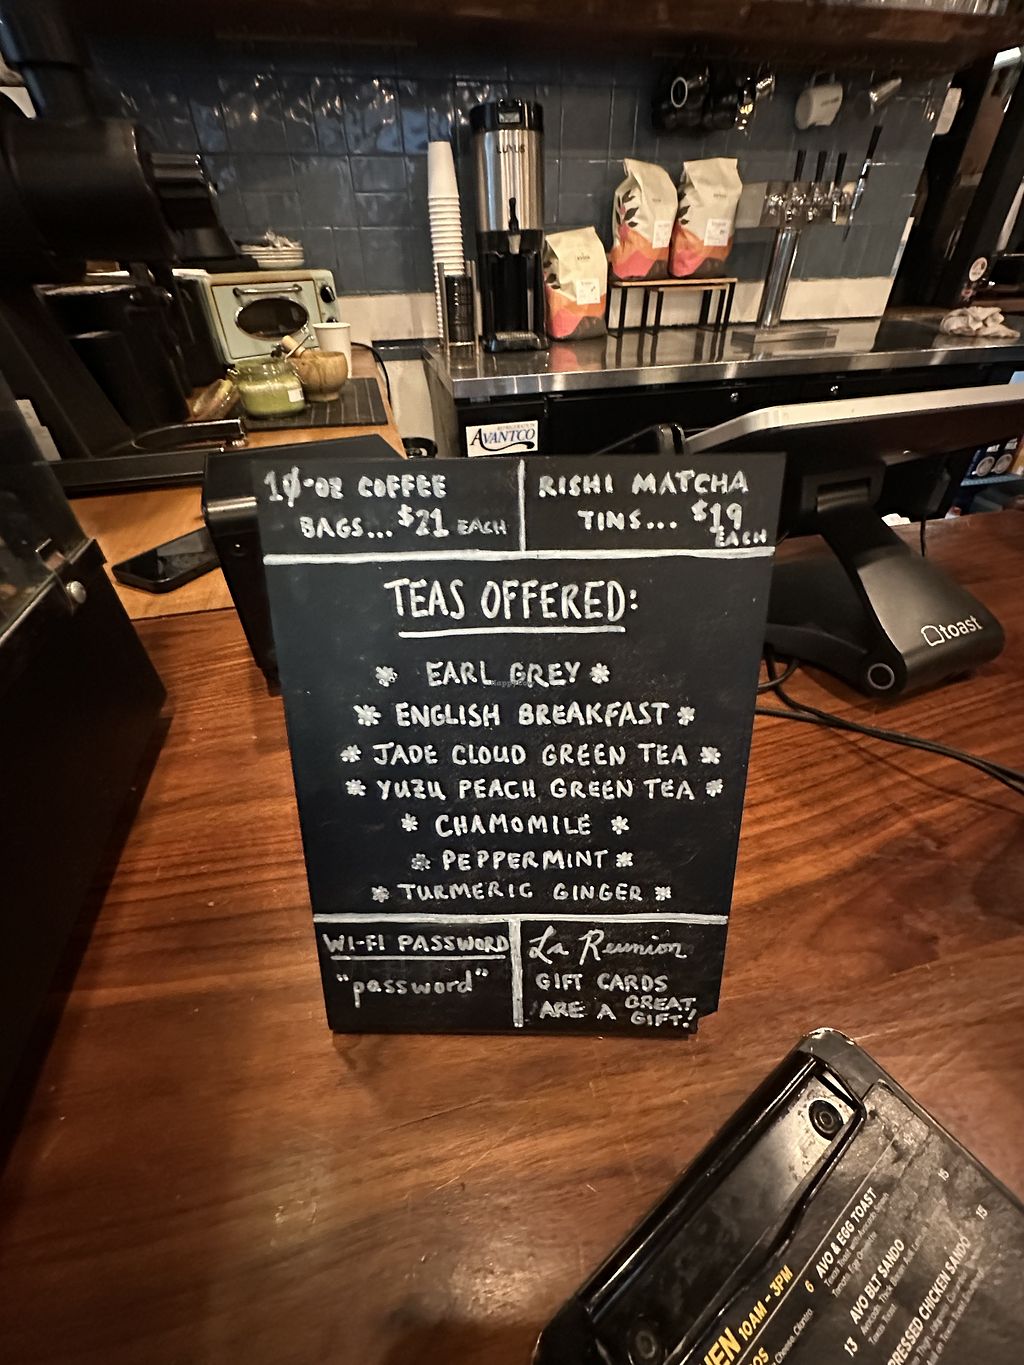 LUXUS
REFRIGERATION
AVANTCO
10-OZ COFFEE
BAGS... $21 EACH
RISHI MATCHA
TINS... $19
EACH
TEAS OFFERED:
* EARL GREY *
* ENGLISH BREAKFAST *
* JADE CLOUD GREEN TEA *
* YUZU PEACH GREEN TEA *
* CHAMOMILE *
* PEPPERMINT *
* TURMERIC GINGER *
WI-FI PASSWORD
"password"
La Reunion
GIFT CARDS
ARE A GREAT
GIFT!
toast
10AM - 3PM
6
AVO & EGG TOAST
15
Texas Toast with Avocado Smash
AVO BLT SANDO
15
Texas Toast
13
CHICKEN SANDO